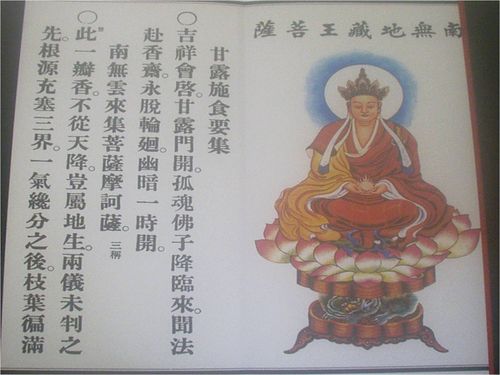 南無地藏王菩薩
甘露施食要集
○吉祥會啓。甘露門開。孤魂佛子降臨來。聞法
赴香齋。永脫輪迴。幽暗一時開。
南無雲來集菩薩摩訶薩。三稱
○此一瓣香。不從天降。豈屬地生。兩儀未判之
先。根源充塞三界。一氣纔分之後。枝葉徧滿